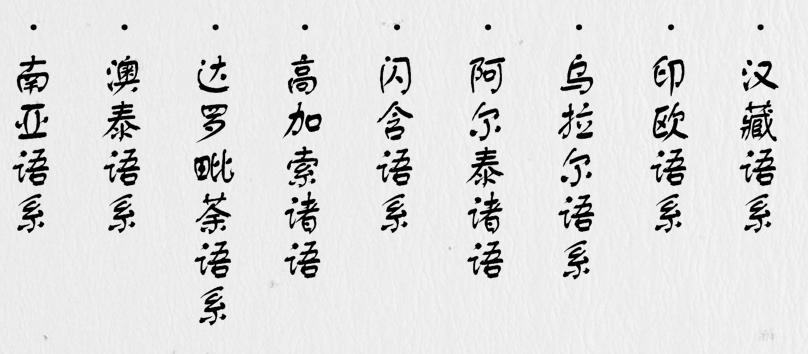 • 汉藏语系
• 印欧语系
• 乌拉尔语系
• 阿尔泰诸语
• 闪含语系
• 高加索诸语
• 达罗毗荼语系
• 澳泰语系
• 南亚语系